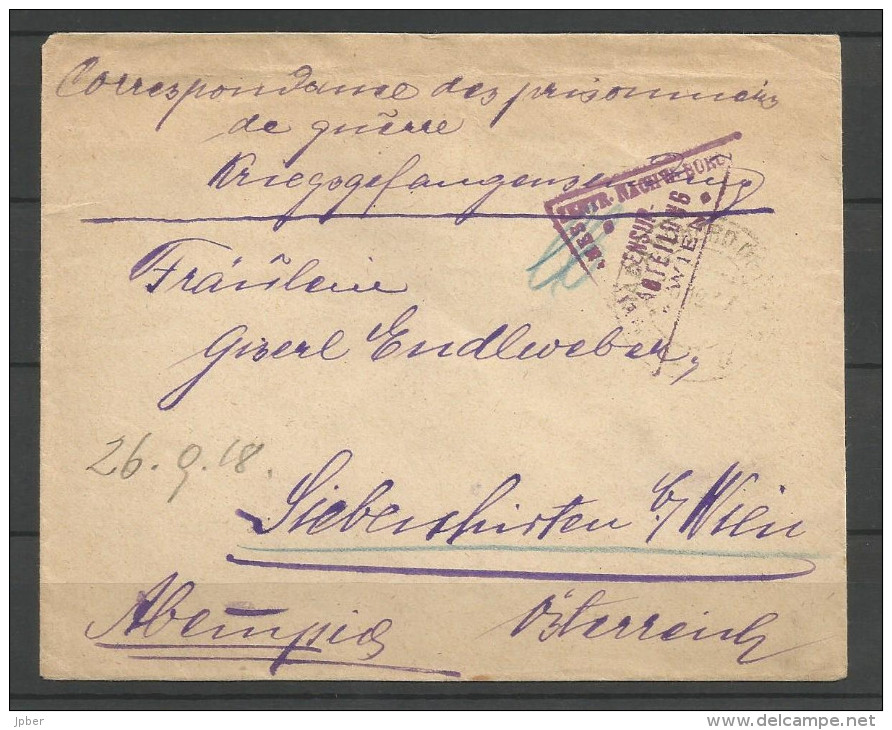 Correspondance des prisonniers
de guerre
Kriegsgefangensendung
OESTR. NACHW. BÜRO
ZENSUR-
ABTEILUNG
WIEN
Fräulein
Giserl Endlweber,
26.9.18.
Siebenhirten b/ Wien
Австрія
Österreich
Jpber
www.delcampe.net